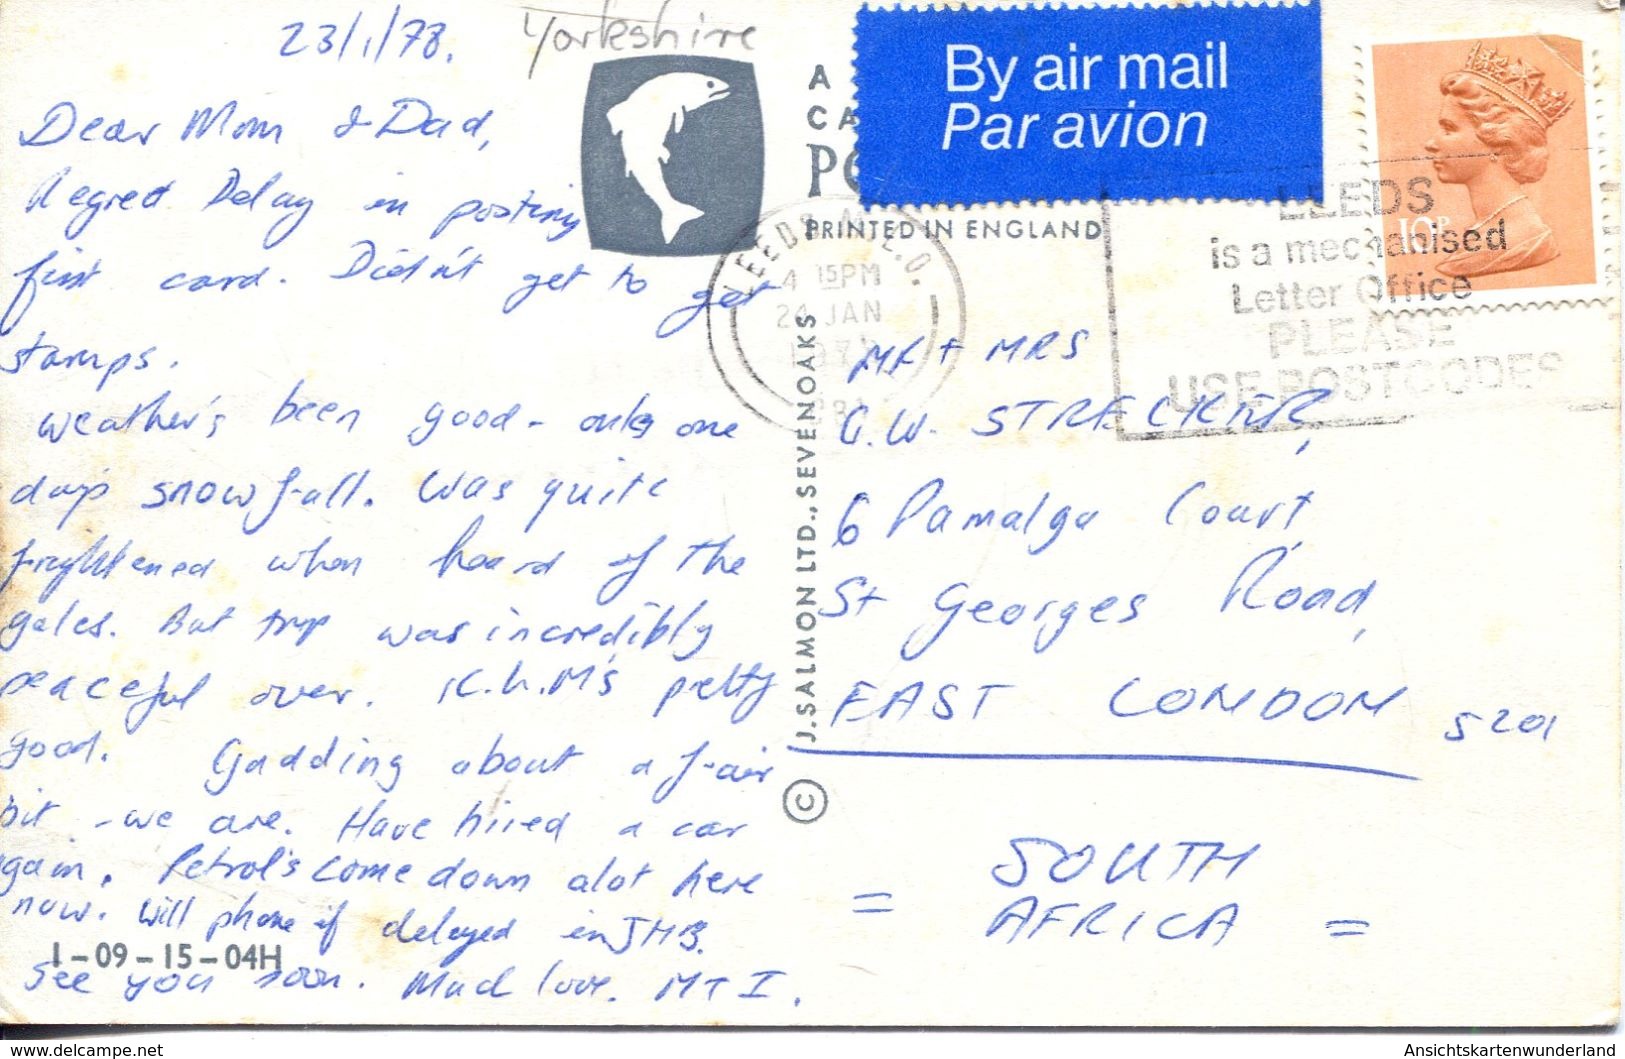 23/1/78.
Yorkshire
Dear Mom & Dad,
Regred Delay in posting
first card. Didn't get to get
stamps.
Weather's been good - only one
day's snowfall. Was quite
frightened when heard of the
gales. But trip was incredibly
peaceful over. K.L.M's pretty
good. Gadding about a fair
bit - we are. Have hired a car
again. Petrol's come down alot here
now. Will phone if delayed in JHB.
See you soon. Much love. M + I.
1-09-15-04H
A
CA
PO
PRINTED IN ENGLAND
J. SALMON LTD., SEVENOAKS
©
By air mail
Par avion
10P
LEEDS
4 15PM
24 JAN
LEEDS
is a mechanised
Letter Office
PLEASE
USE POSTCODES
MR + MRS
G.W. STRECKER,
6 Pamalga Court,
St Georges Road,
EAST LONDON 5201
= SOUTH
AFRICA =
www.delcampe.net
Ansichtskartenwunderland